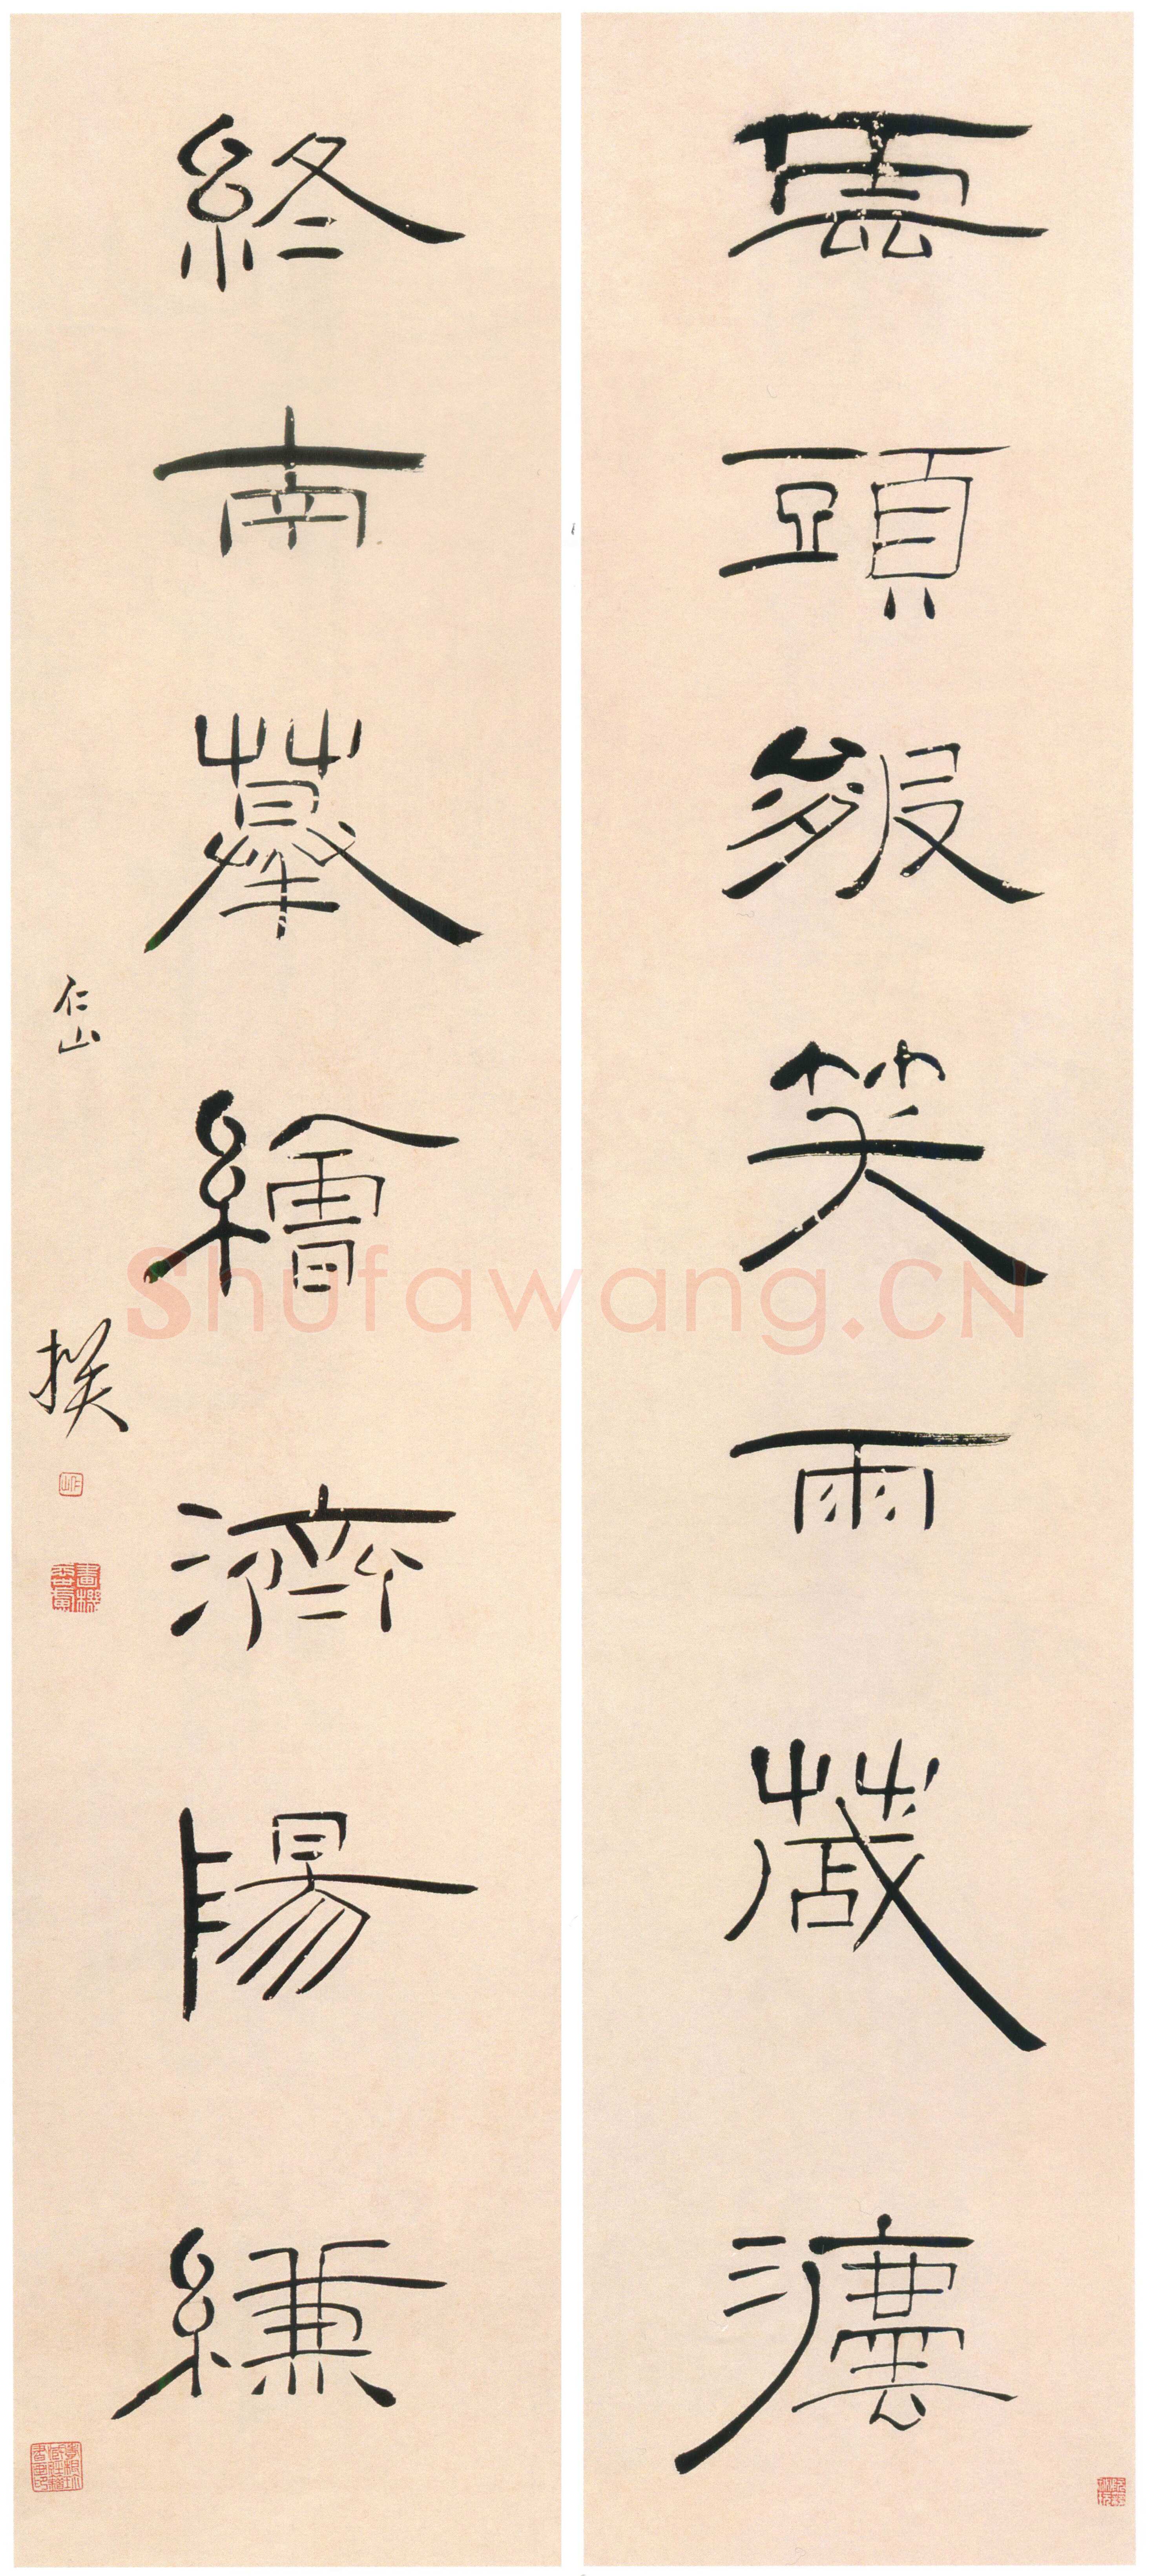 雲頭皴笑雨蒧灋
終南摹繪濟陽縑
仁山撰
Shufawang.CN